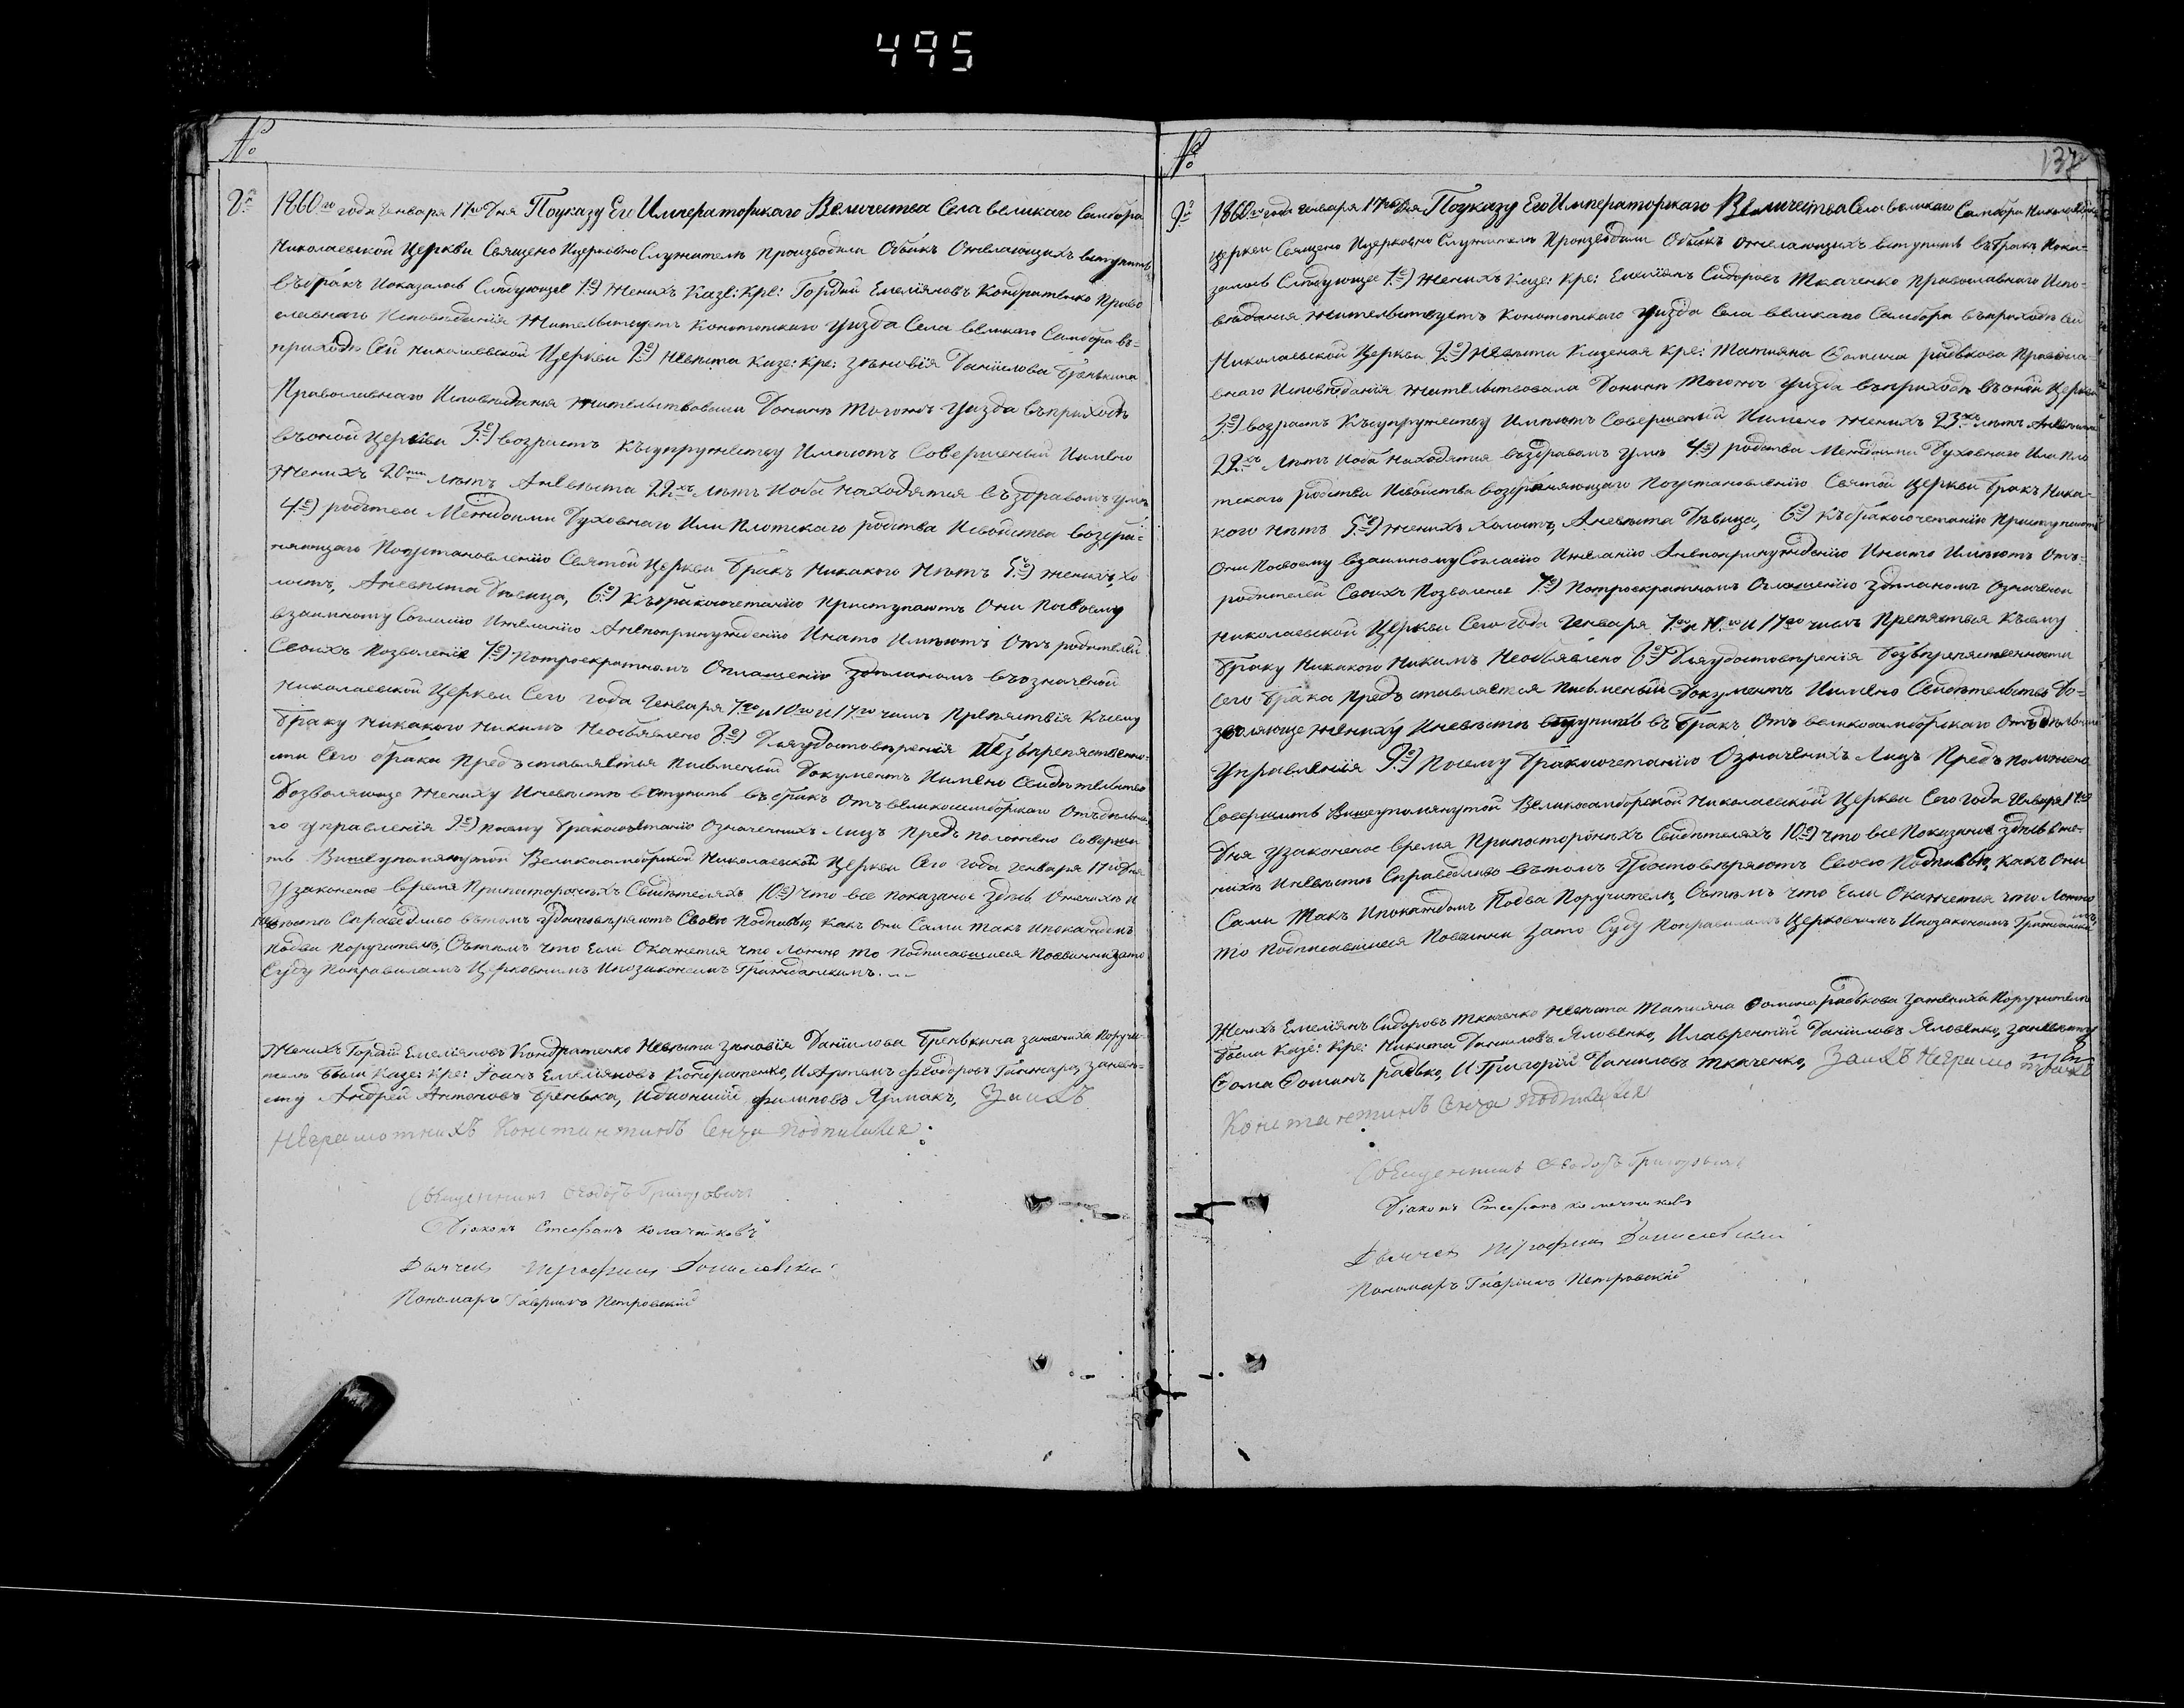 495
№
8е 1860го года Генваря 17го Дня Поуказу Его Императорскаго Величества Села великаго Самбора
Николаевской Церкви Священо Ицерковно Служители Производили Обыск Ожелающихъ вступить
въбракъ Ипоказалось Следующее 1е) женихъ Казе: Кре: Гордій Емеліяновъ Кондратенко Право
славнаго Исповеданія Жительствуетъ Конотопскаго Уизда Села великаго Самбора въ-
приходе Сей николаевской Церкви 2е) невеста Казе: Кре: Зѣновія Даніилова Бренькина
Православнаго Исповеданія жительствовала Донине Тогожъ Уизда въприходе
въоной Церкви 3е) возрастъ Късупружеству Имеютъ Совершеный Иимено
женихъ 20ти летъ Аневеста 22хъ летъ Иоба находятся въздравомъ уме
4е) родства Междоими Духовнаго Или Плотскаго родства Исвойства возбра-
няющаго Поустановленію Святой Церкви Бракъ Никакого Нетъ 5е) женихъ хо
лостъ, Аневеста Девица, 6е) Къбракосочетанію Приступаютъ Они Посвоему
взаимному Согласію Ижеланію Анепопринужденію Инато Имеютъ Отъ родителей
Своихъ Позволеніе 7е) Потроекратномъ Оглашенію зделаномъ възначеной
николаевской Церкви Сего года Генваря 7го и 10го и 17го числъ Препятствія Късему
браку никакого Никимъ Необявлено 8е) Дляудостоверенія безъпрепятственно-
сти Сего брака Предъставляется Письменый Документъ Иимено Свидетельство
Дозволяюще жениху Иневесте вступить въбракъ Отъвеликосамборскаго Отъдельна
го управленія 9е) посему бракосочетаніе Означенихъ Лицъ Предъположено Соверши
ть Вишеупомянутой Великосамборской Николаевской Церкви Сего года генваря 17го Дня
Узаконеное время Припостороннихъ Свидетеляхъ 10е) что все показаное здесь Ожених И
невесте Справедливо вътомъ удостоверяютъ Своею Подписью, какъ Они Сами так Ипокаждомъ
Подва поручителе, Стемъ что Если Окажется что ложно то Подписавшиеся Повинни зато
Суду Поправиламъ Церковнимъ Ипозаконамъ Гражданскимъ.
Женихъ Гордій Емеліяновъ Кондратенко Невеста Зѣновія Даніилова Бренькина заженіха Поручи-
тели были Казе: Кре: Іоанъ Емеліяновъ Кондратенко, И Артемъ Феодоровъ Ганжара, заневе-
сту Андрей Антоновъ Бренько, Идионисій Филиповъ Ярмакъ, Заихъ
Неграмотнихъ Константинъ Сенча Подписался:
Священникъ Феодоръ Григоровичъ
Діаконъ Стефанъ Колачниковъ
Дьячекъ Трофимъ Данилевскій
Пономаръ Гавриилъ Петровскій
№
137
9е 1860го года Генваря 17го Дня Поуказу Его Императорскаго Величества Села великаго Самбора Николаевской
церкви Священо Ицерковно Служители Производили Обыскъ Ожелающихъ вступить въбракъ Ипока-
залось Следующее 1е) женихъ Казе: Кре: Емеліянъ Сидоровъ Ткаченко Православнаго Испо-
веданія жительствуетъ Конотопскаго Уизда Села великаго Самбора въприходе сей
Николаевской Церкви 2е) невеста Казеная Кре: Татияна Фомина радькова Правосла-
внаго Исповеданія жительствовала Донине Тогожъ Уизда въприходе въоной Церкви
3е) возрастъ Късупружеству Имеютъ Совершеный Иимено женихъ 23хъ летъ Аневеста
22хъ Летъ Иоба находятся въздравомъ уме 4е) родства Междоими Духовнаго Или Пло
тскаго родства Исвойства возбраняющаго Поустановленію Святой Церкви бракъ Ника-
кого нетъ 5е) женихъ Холостъ, Аневеста Девица, 6е) Къбракосочетанію Приступаютъ
Они Посвоему взаимному Согласію Ижеланію Анепопринужденію Инато Имеютъ Отъ-
родителей Своихъ Позволеніе 7е) Потроекратномъ Оглашенію зделаномъ Означеной
николаевской Церкви Сего года Генваря 7го и 10го и 17го числъ Препятствія Късему
браку Никакого Никимъ Необявлено 8е) Дляудостоверенія безъпрепятственности
Сего брака Предъставляется Письменый Документъ Иимено Свидетельство До-
зволяюще жениху Иневесте вступить въ бракъ Отъ великосамборскаго Отъдельнаго
Управленія 9е) Посему бракосочетаніе Означенихъ Лицъ Предъположено
Совершить Вишеупомянутой Великосамборской Николаевской Церкви Сего года Генваря 17го
Дня Узаконеное время Припостороннихъ Свидетеляхъ 10е) что все Показаное здесь Оже-
нихе Иневесте Справедливо вътомъ Удостоверяютъ Своею Подписью, какъ Они
Сами Такъ Ипокаждомъ Подва Поручителе, Стемъ что Если Окажется что Ложно
то Подписавшиеся Повинни зато Суду Поправиламъ Церковнимъ Ипозаконамъ Гражданскимъ
Женихъ Емеліянъ Сидоровъ Ткаченко Невеста Татияна Фомина радькова Заженіха Поручители
были Казе: Кре: Никита Даниловъ Яловенко, Илаврентій Даніиловъ Яловенко, Заневесту
Фома Фоминъ радько, И Григорій Даниловъ Ткаченко, Заихъ Неграмотныхъ
Константинъ Сенча Подписался
Священникъ Феодоръ Григоровичъ
Діаконъ Стефанъ Колачниковъ
Дьячекъ Трофимъ Данилевскій
Пономаръ Гавриилъ Петровскій